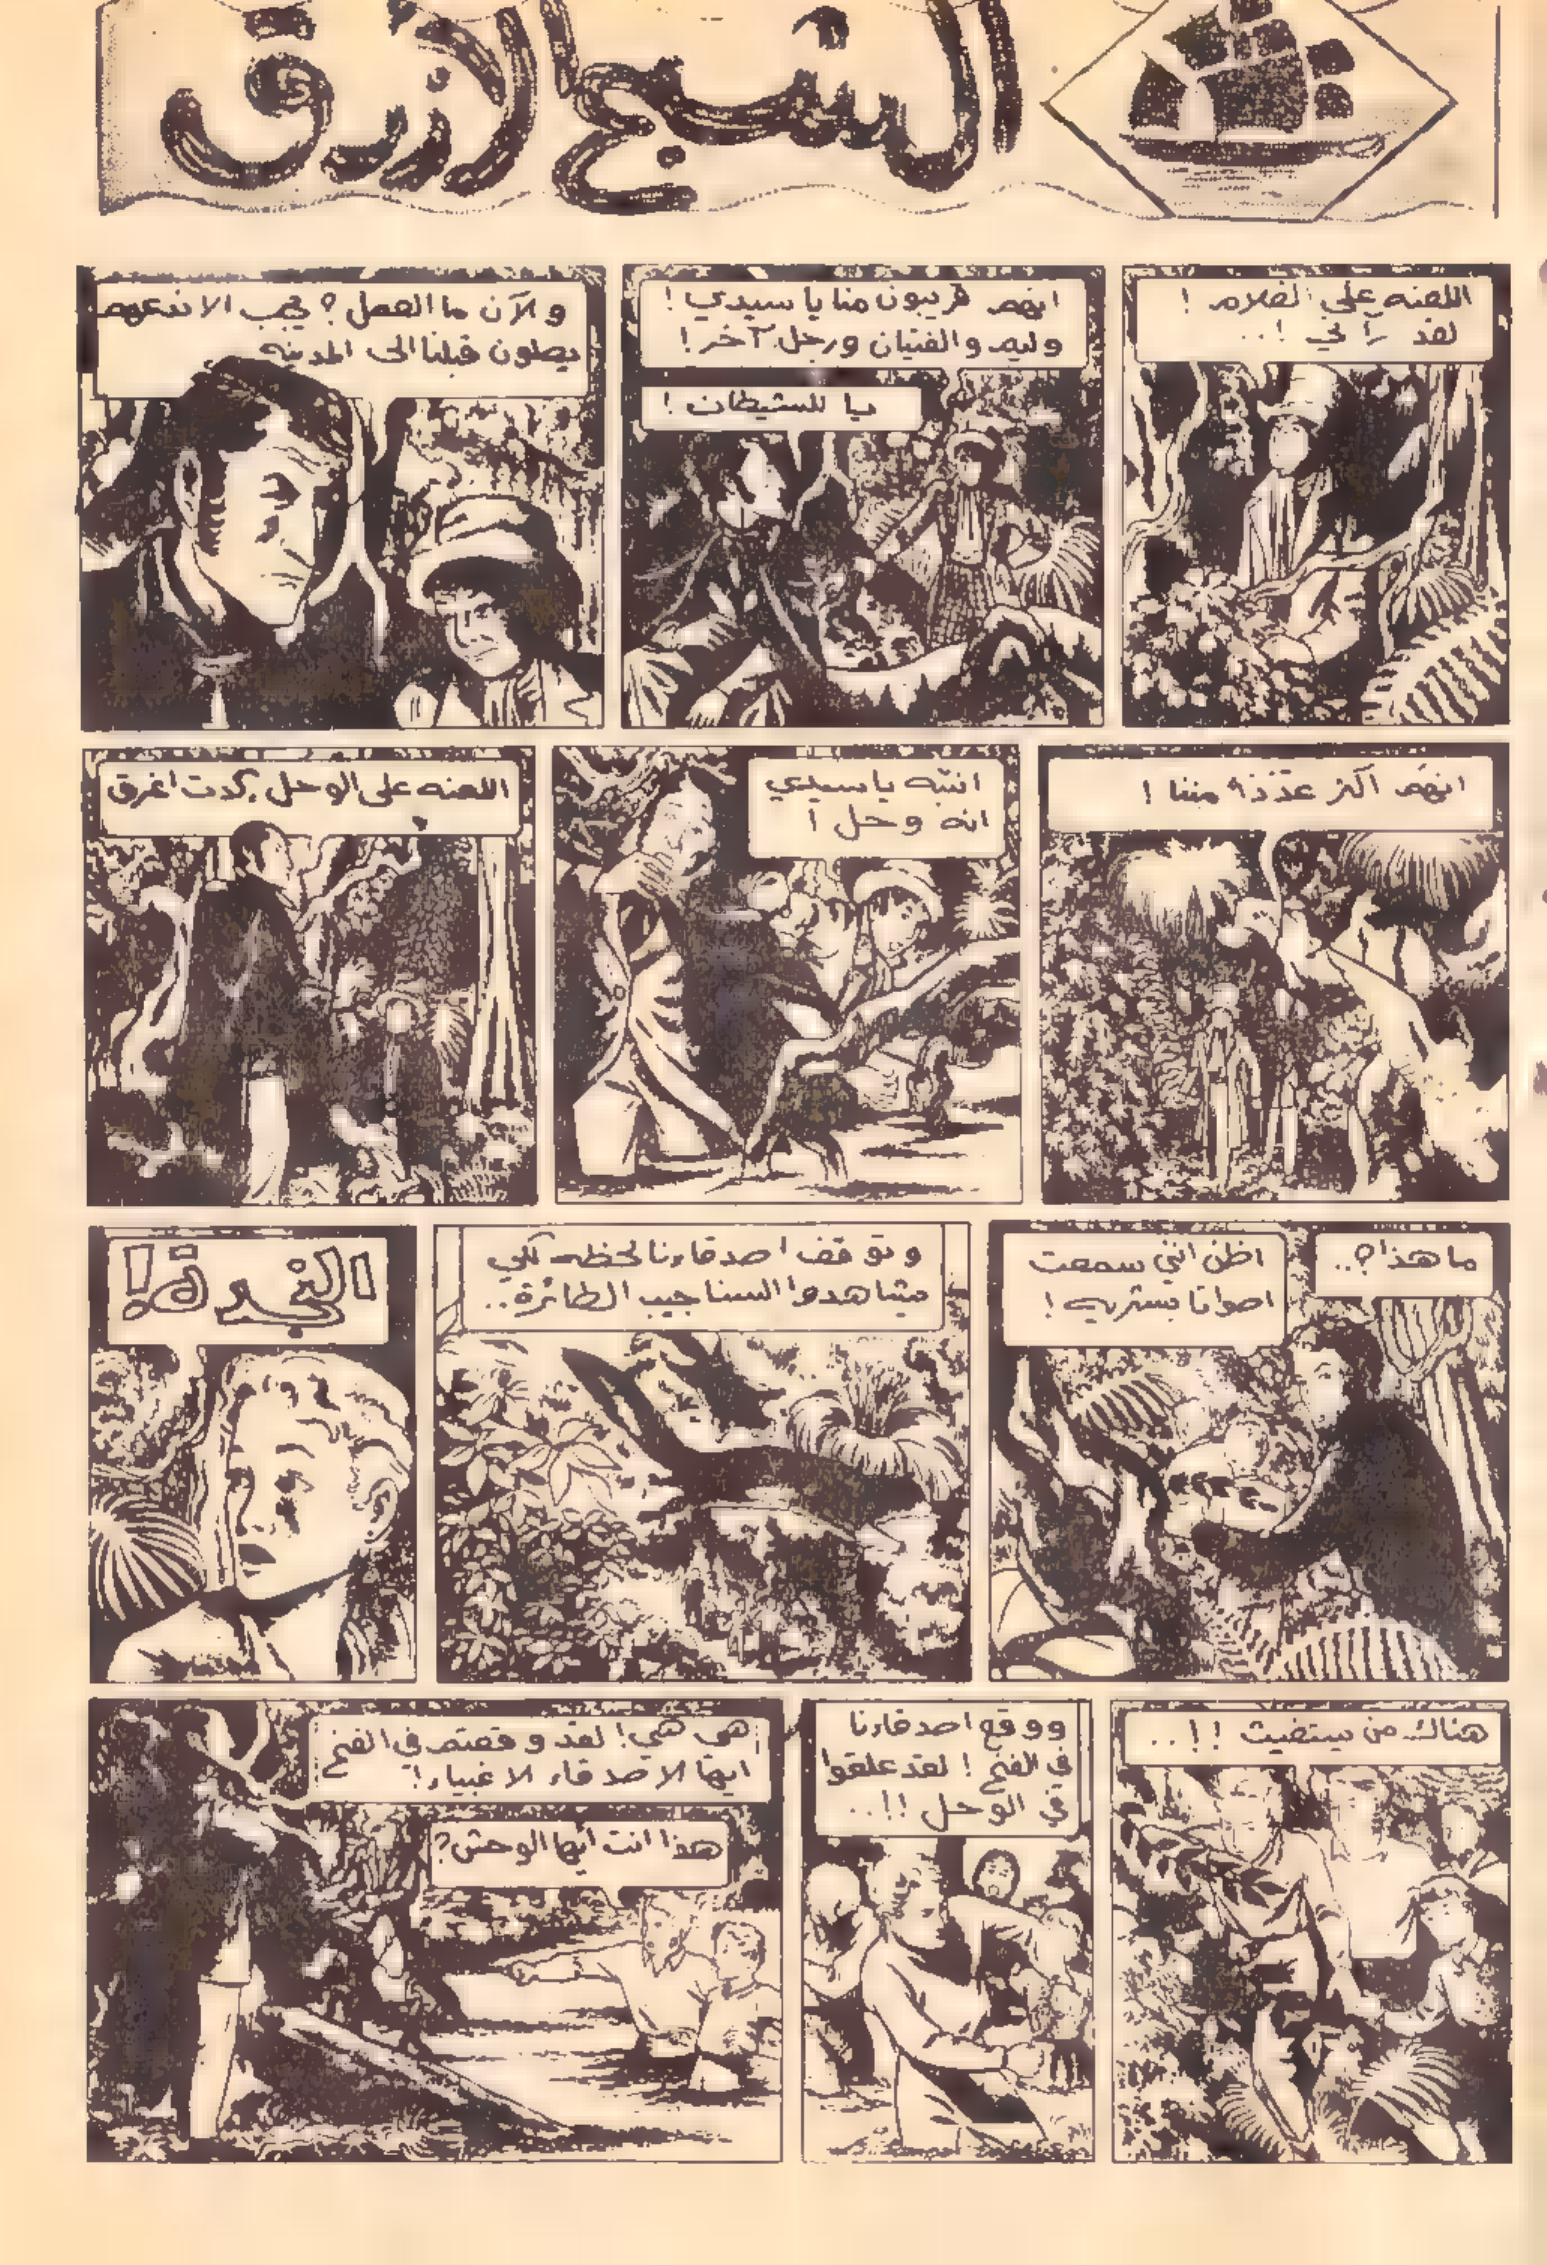 الشبح الأزرق
اللعنه على الغلام !
لقد رآني !..
انهم قريبون منا يا سيدي !
وليم والفتيان ورجل آخر !
يا للشيطان !
والآن ما العمل ؟ يجب الا ندعهم
يصلون قبلنا الى المدينه
انهم اكثر عدداً مننا !
انتبه يا سيدي
انه وحل !
اللعنه على الوحل كدت اغرق
ما هذا ؟..
اظن انني سمعت
اصواتا بشريه !
وتوقف اصدقاءنا لحظه لكي
يشاهدوا السناجيب الطائرة..
النجدة!
هناك من يستغيث !!..
ووقع اصدقاءنا
في الفخ ! لقد علقوا
في الوحل !!..
هي هي ! لقد وقعتم في الفخ
ايها الاصدقاء الاغبياء !
هذا انت أيها الوحش ؟